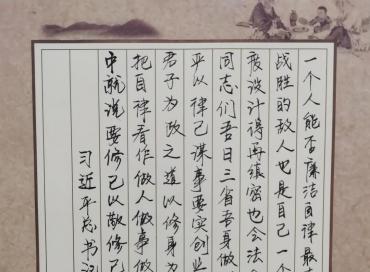 一个人能否廉洁自律最
战胜的敌人也是自己一个
度设计得再缜密也会法
同志们吾日三省吾身做
严以律己谋事要实创业
君子为政之道以修身为
把自律看作做人做事做
中就说要修己以敬修己
习近平总书记